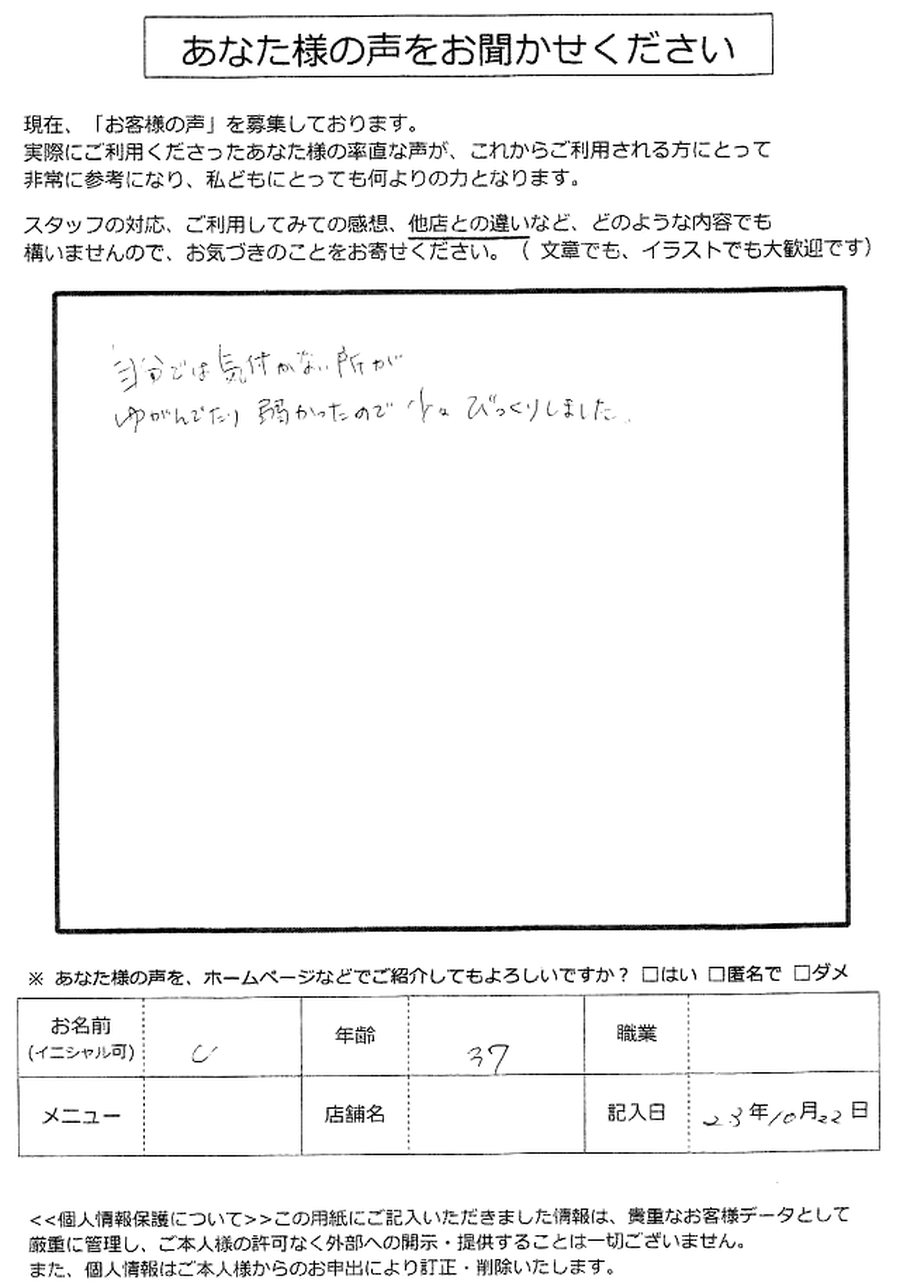 あなた様の声をお聞かせください
現在、「お客様の声」を募集しております。
実際にご利用くださったあなた様の率直な声が、これからご利用される方にとって
非常に参考になり、私どもにとっても何よりの力となります。
スタッフの対応、ご利用してみての感想、他店との違いなど、どのような内容でも
構いませんので、お気づきのことをお寄せください。（ 文章でも、イラストでも大歓迎です）
自分では気付かない所が
ゆがんでたり 弱かったので 少々 びっくりしました。
※ あなた様の声を、ホームページなどでご紹介してもよろしいですか？ □はい □匿名で □ダメ
お名前 年齢 37 職業
(イニシャル可)
メニュー 店舗名 記入日 23年10月22日
<<個人情報保護について>>この用紙にご記入いただきました情報は、貴重なお客様データとして
厳重に管理し、ご本人様の許可なく外部への開示・提供することは一切ございません。
また、個人情報はご本人様からのお申出により訂正・削除いたします。